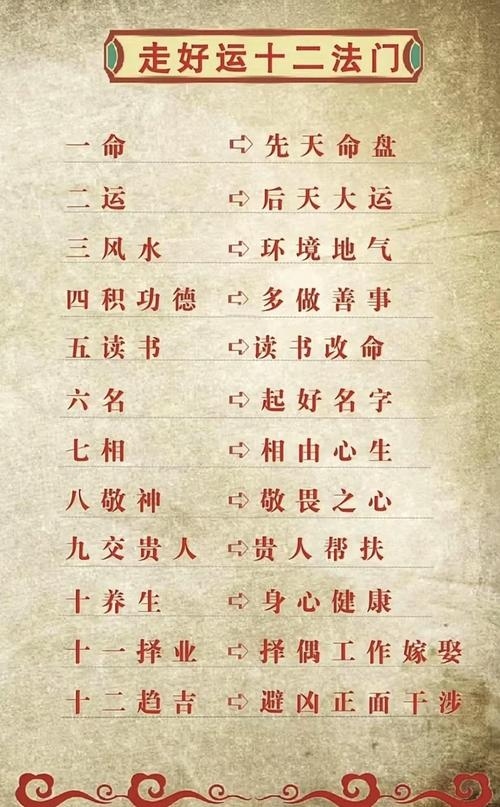 走好运十二法门
一命 ➪ 先天命盘
二运 ➪ 后天大运
三风水 ➪ 环境地气
四积功德 ➪ 多做善事
五读书 ➪ 读书改命
六名 ➪ 起好名字
七相 ➪ 相由心生
八敬神 ➪ 敬畏之心
九交贵人 ➪ 贵人帮扶
十养生 ➪ 身心健康
十一择业 ➪ 择偶工作嫁娶
十二趋吉 ➪ 避凶正面干涉